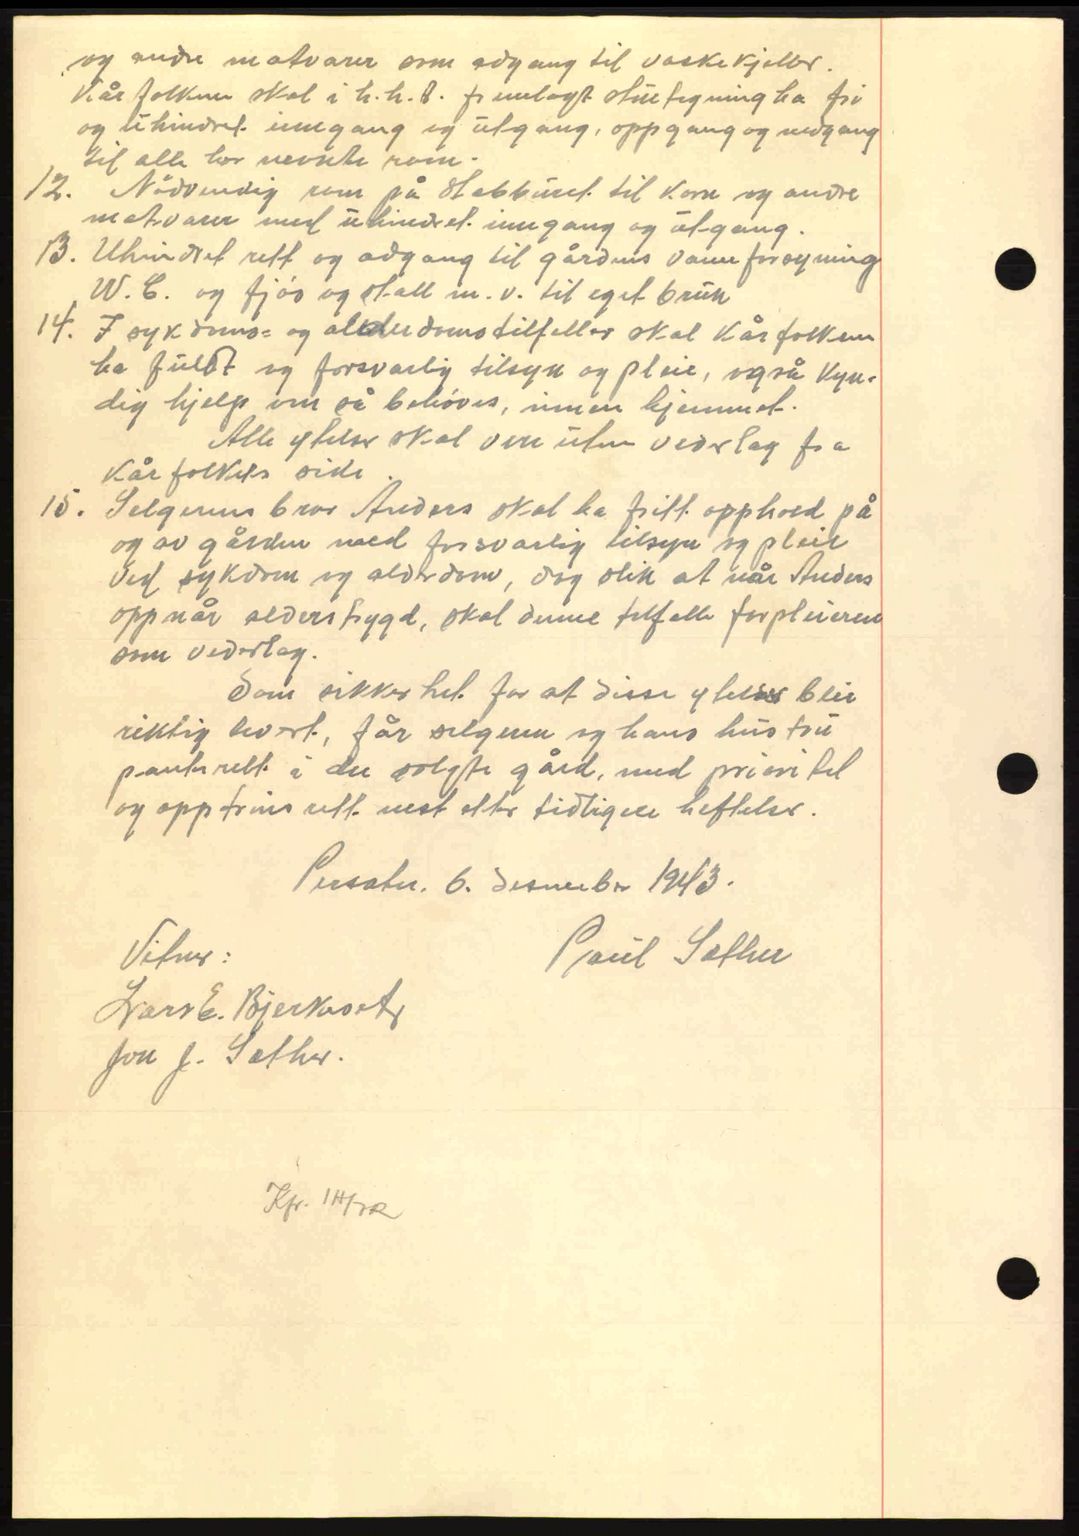 og andre matvarer som adgang til vaskekjeller.
Kårfolkene skal i h.h.t. fremlagt stuetegning ha fri
og uhindret inngang og utgang, oppgang og nedgang
til alle her nevnte rom.
12. Nödvendig rom på stabburet til korn og andre
matvarer med uhindret inngang og utgang.
13. Uhindret rett og adgang til gårdens vannforsyning
W.C. og fjös og stall m.v. til eget bruk
14. I sykdoms= og alderdomstilfeller skal kårfolkene
ha fuldt og forsvarlig tilsyn og pleie, også kyn-
dig hjelp om så behöves, innen hjemmet.
Alle ytelser skal vere uten vederlag fra
kårfolkets side.
15. Selgerens bror Anders skal ha fritt opphold på
og av gården med forsvarlig tilsyn og pleie
ved sykdom og alderdom, dog slik at når Anders
oppnår alderstrygd, skal denne tilfalle forpleieren
som vederlag.
Som sikkerhet for at disse ytelser blir
riktig levert, får selgeren og hans hustru
panterett i den solgte gård, med prioritet
og opptrinsrett nest etter tidligere heftelser.
Persater. 6. desember 1943.
Vitner: Paul Sæther
Lars E. Bjerkeset
Jon J. Sæther.
Kfr.